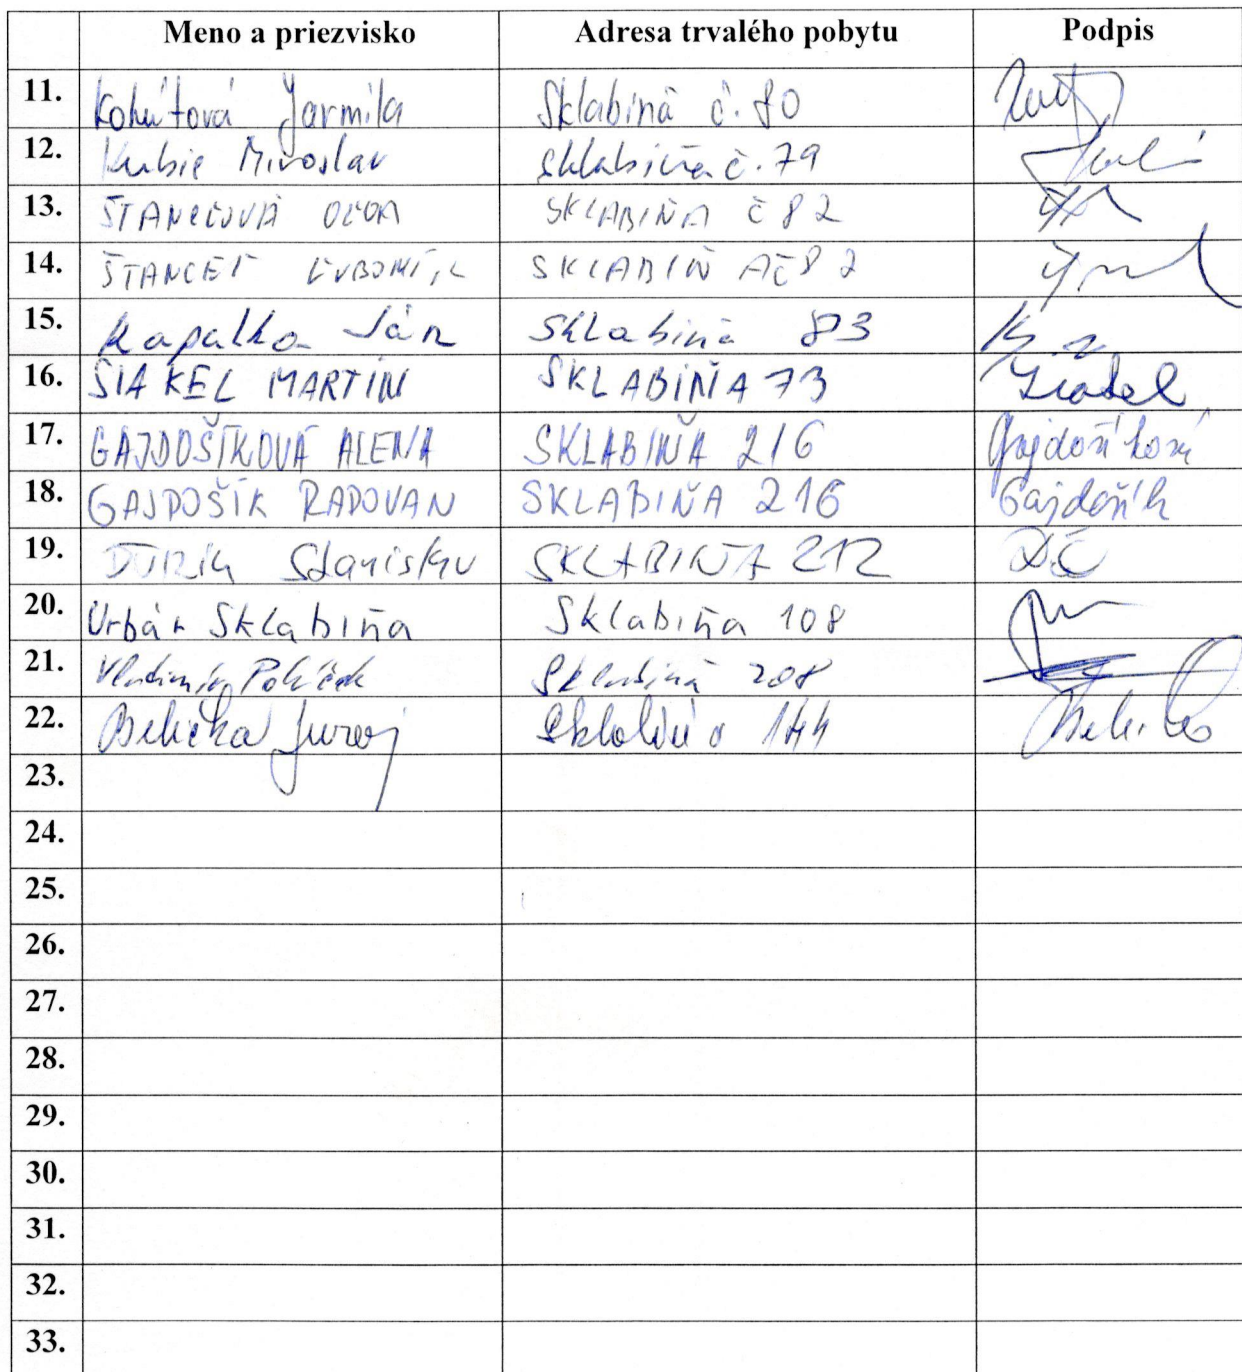 Meno a priezvisko Adresa trvalého pobytu Podpis
11. Kohútová Jarmila Sklabiná č. 80
12. Kubie Miroslav Sklabiňa č. 79
13. ŠTANCEĽOVÁ OĽGA SKLABIŇA č 82
14. ŠTANCEĽ ĽUBOMÍR SKLABIŇ Ač 82
15. Kapalka Ján Sklabiňa 83
16. ŠIAKEL MARTIN SKLABIŇA 73 Šiakel
17. GAJDOŠÍKOVÁ ALENA SKLABIŇA 216 Gajdošíková
18. GAJDOŠÍK RADOVAN SKLABIŇA 216 Gajdošík
19. Stanislav SKLABIŇA 212
20. Urbán Sklabiňa Sklabiňa 108
21. Vladimír Sklabiňa 208
22. Juraj Sklabiňa 144
23.
24.
25.
26.
27.
28.
29.
30.
31.
32.
33.